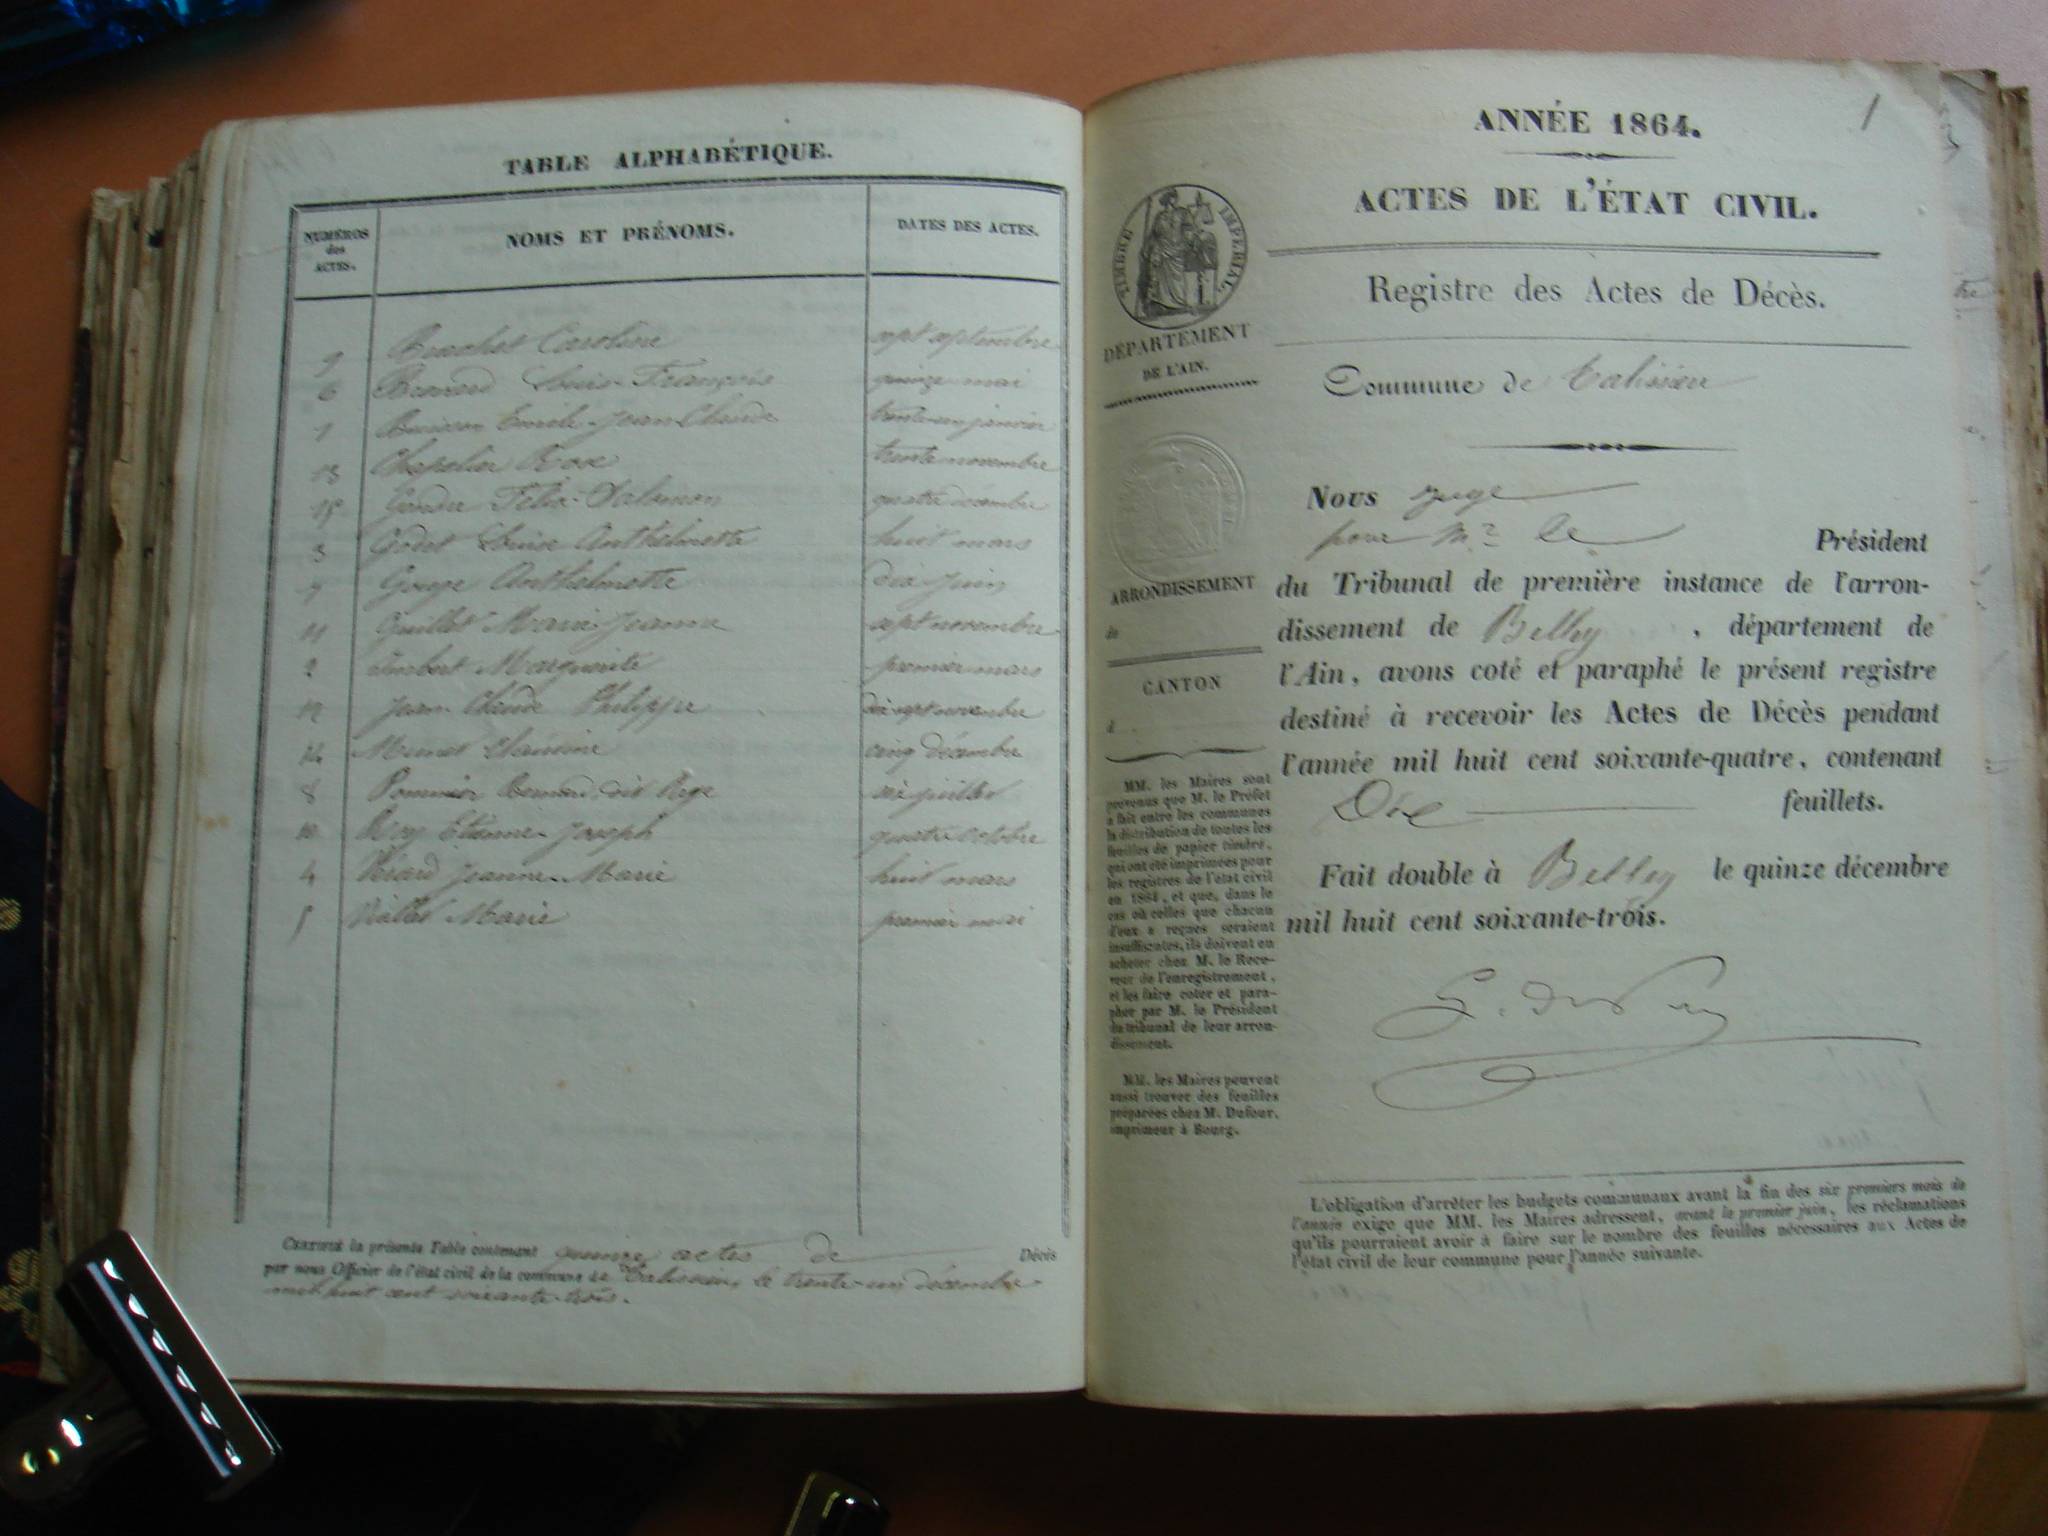 TABLE ALPHABÉTIQUE.
NUMÉROS des ACTES. NOMS ET PRÉNOMS. DATES DES ACTES.
9 Caroline sept septembre
6 Bernard Louis-François quinze mai
1 Buisson Emile-Jean-Claude trente-un janvier
13 Chapelier Rose trente novembre
Félix-Salomon quatre décembre
3 Godet Louise Anthelmette huit mars
7 Gouge Anthelmette dix juin
11 Guillet Marie-Jeanne sept novembre
2 Imbert Marguerite premier mars
12 Jean-Claude Philippe dix-sept novembre
14 Claudine cinq décembre
8 Pommier Bernard dit juillet
10 Roy Etienne-Joseph quatre octobre
4 Jeanne-Marie huit mars
5 Viallet Marie premier mai
CERTIFIÉ la présente Table contenant quinze actes de Décès
par nous Officier de l'état civil de la commune de Talissieu, le trente-un décembre
mil huit cent soixante-trois.
1
ANNÉE 1864.
ACTES DE L'ÉTAT CIVIL.
TIMBRE IMPÉRIAL
Registre des Actes de Décès.
DÉPARTEMENT
DE L'AIN.
Commune de Talissieu
Nous juge
pour Mr le Président
du Tribunal de première instance de l'arron-
dissement de Belley, département de
l'Ain, avons coté et paraphé le présent registre
destiné à recevoir les Actes de Décès pendant
l'année mil huit cent soixante-quatre, contenant
Dix feuillets.
Fait double à Belley le quinze décembre
mil huit cent soixante-trois.
ARRONDISSEMENT
de
CANTON
d
MM. les Maires sont
prévenus que M. le Préfet
a fait entre les communes
la distribution de toutes les
feuilles de papier timbré,
qui ont été imprimées pour
les registres de l'état civil
en 1864, et que, dans le
cas où celles que chacun
d'eux a reçues seraient
insuffisantes, ils doivent en
acheter chez M. le Rece-
veur de l'enregistrement,
et les faire coter et para-
pher par M. le Président
du tribunal de leur arron-
dissement.
MM. les Maires peuvent
aussi trouver des feuilles
préparées chez M. Dufour,
imprimeur à Bourg.
L'obligation d'arrêter les budgets communaux avant la fin des six premiers mois de
l'année exige que MM. les Maires adressent, avant le premier juin, les réclamations
qu'ils pourraient avoir à faire sur le nombre des feuilles nécessaires aux Actes de
l'état civil de leur commune pour l'année suivante.